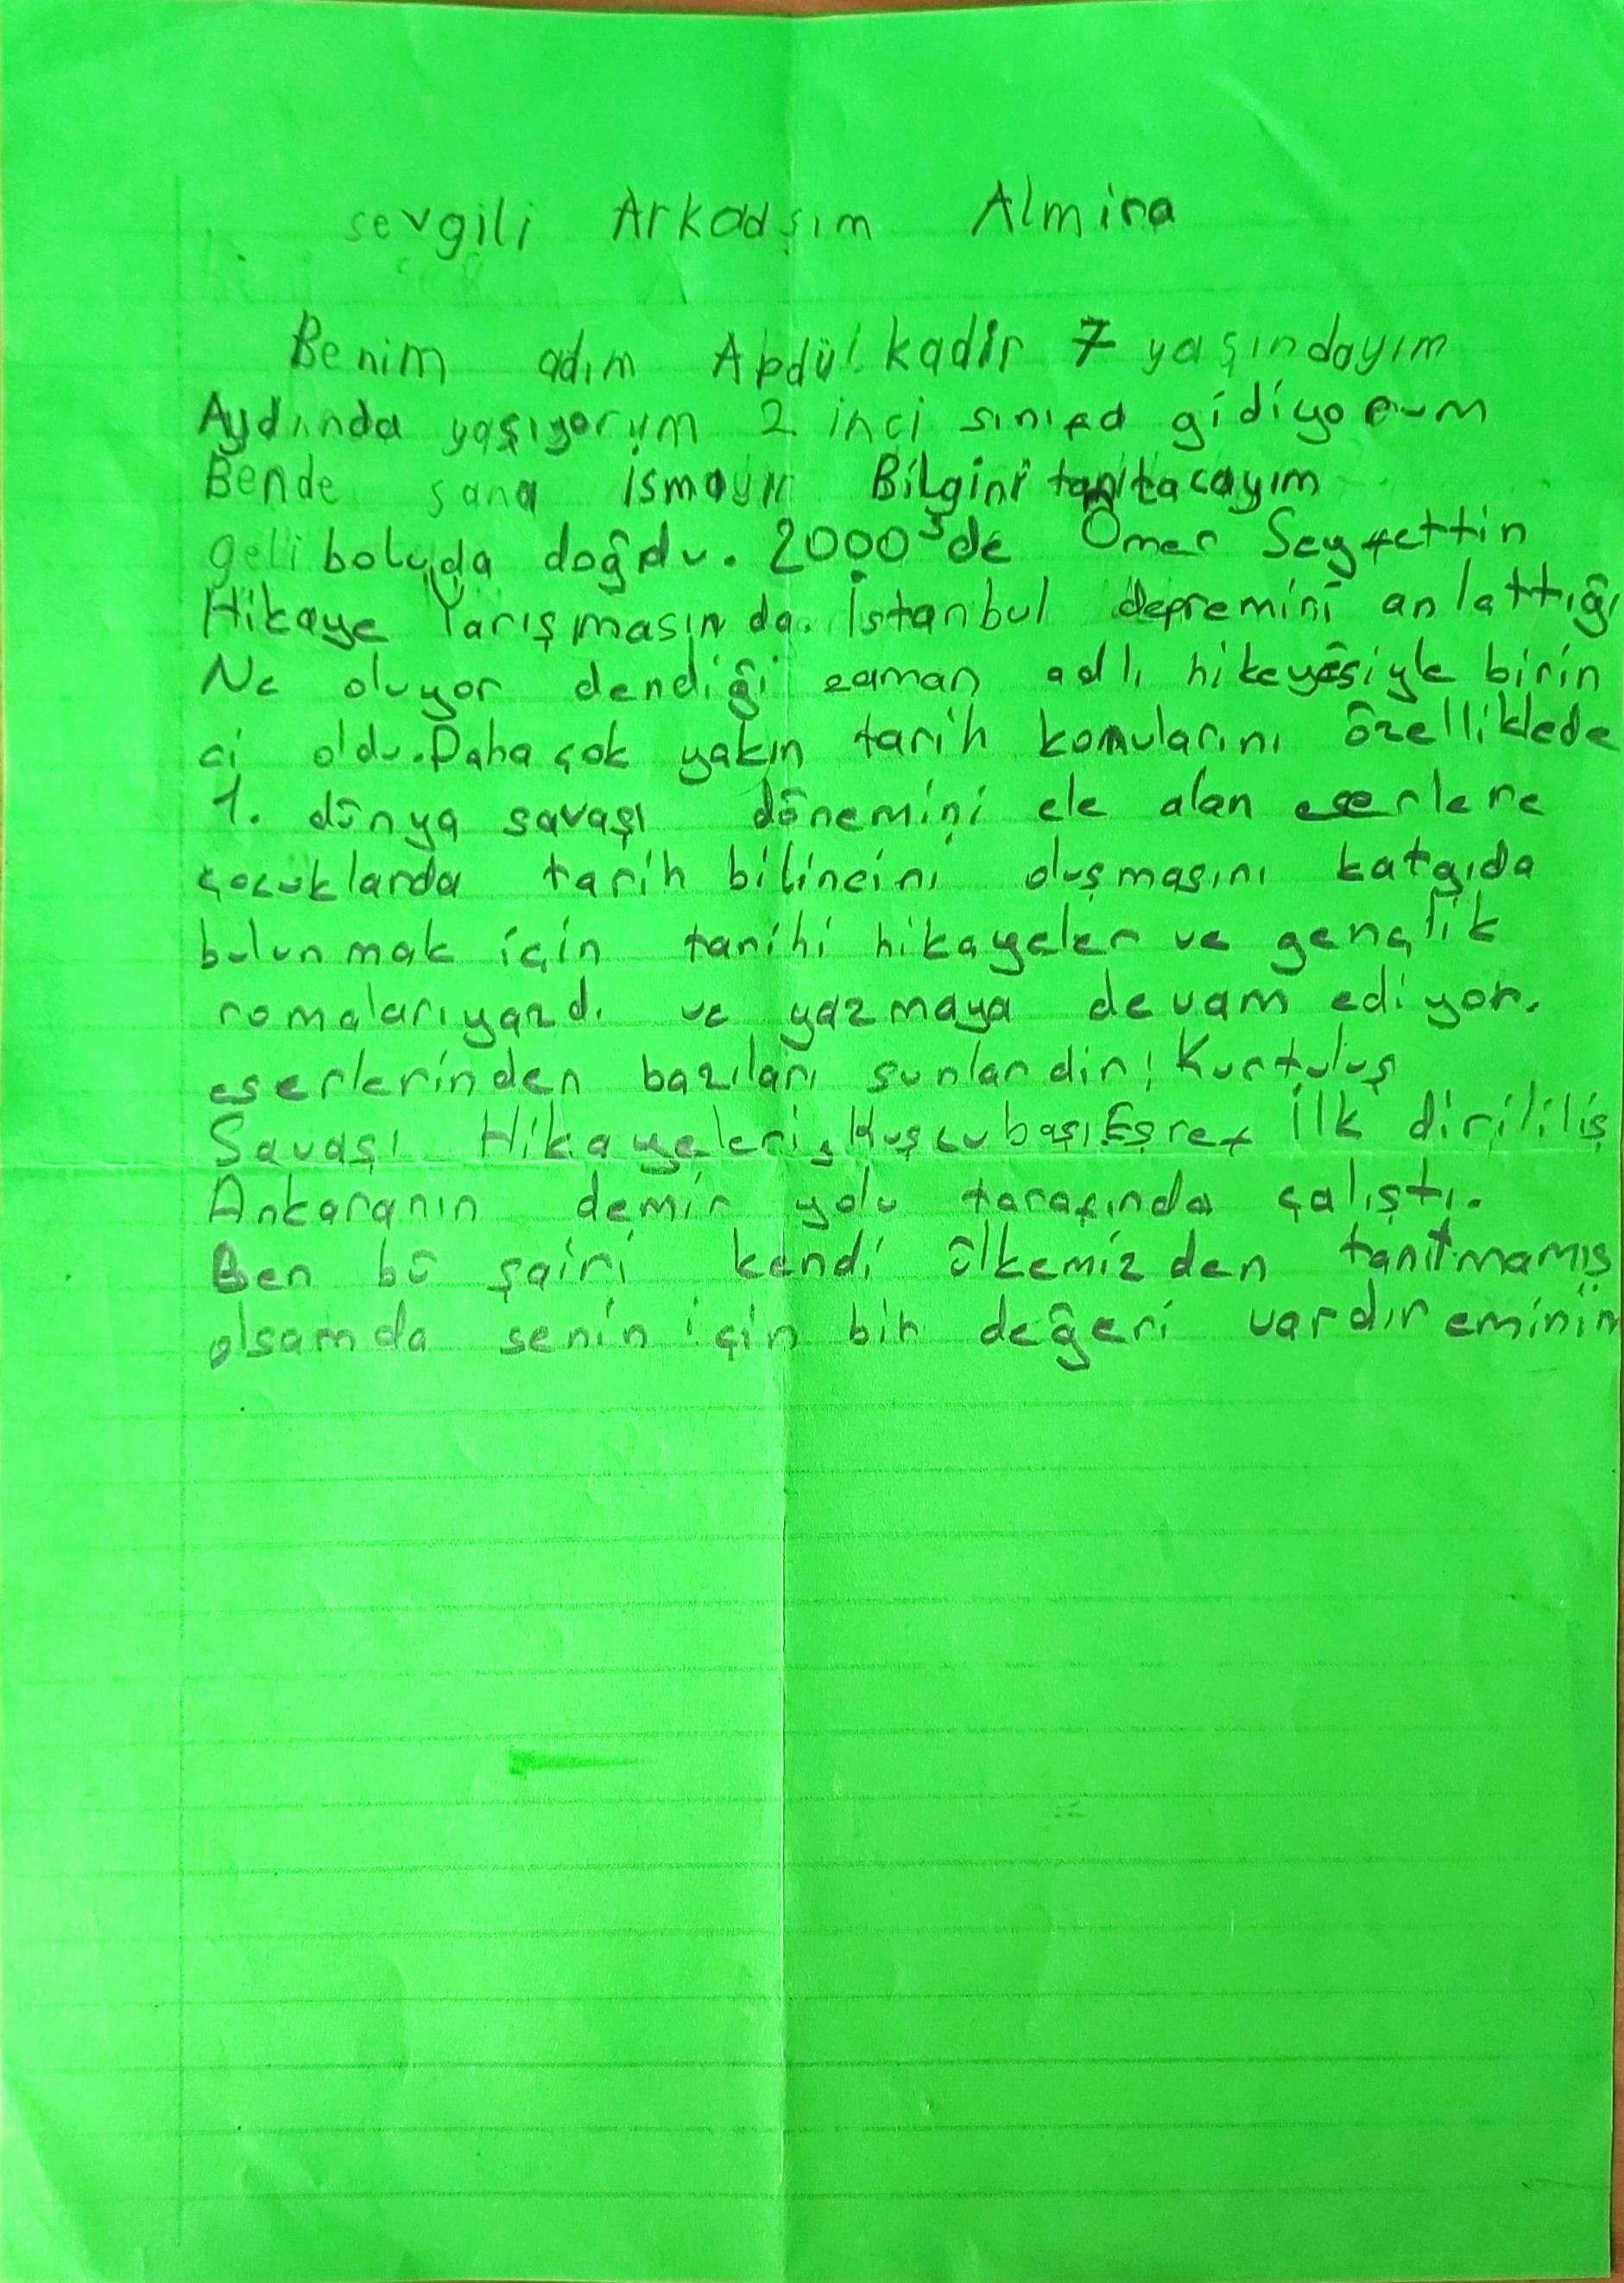 sevgili Arkadşım Almira
Benim adım Abdülkadir 7 yaşındayım
Aydında yaşıyorum 2 inci sınıfa gidiyorum
Bende sana ismayil Bilgini tanıtacayım
geliboluda doğdu. 2000'de Ömer Seyfettin
Hikaye Yarışmasında. İstanbul depremini anlattığı
Ne oluyor dendiği zaman adlı hikeyesiyle birin
ci oldu. Daha çok yakın tarih konularını özelliklede
1. dünya savaşı dönemini ele alan eserlere
çocüklarda tarih bilincini oluşmasını katgıda
bulunmak için tarihi hikayeler ve gençlik
romalarıyazdı ve yazmaya devam ediyor.
eserlerinden bazıları şunlardir! Kurtuluş
Savaşı Hikayeleri, Kuşcubaşı Eşref İlk dirililiş
Ankaranın demir yolu tarafında çalıştı.
Ben bü şairi kendi ülkemizden tanıtmamış
olsamda senin için bir değeri vardır eminim